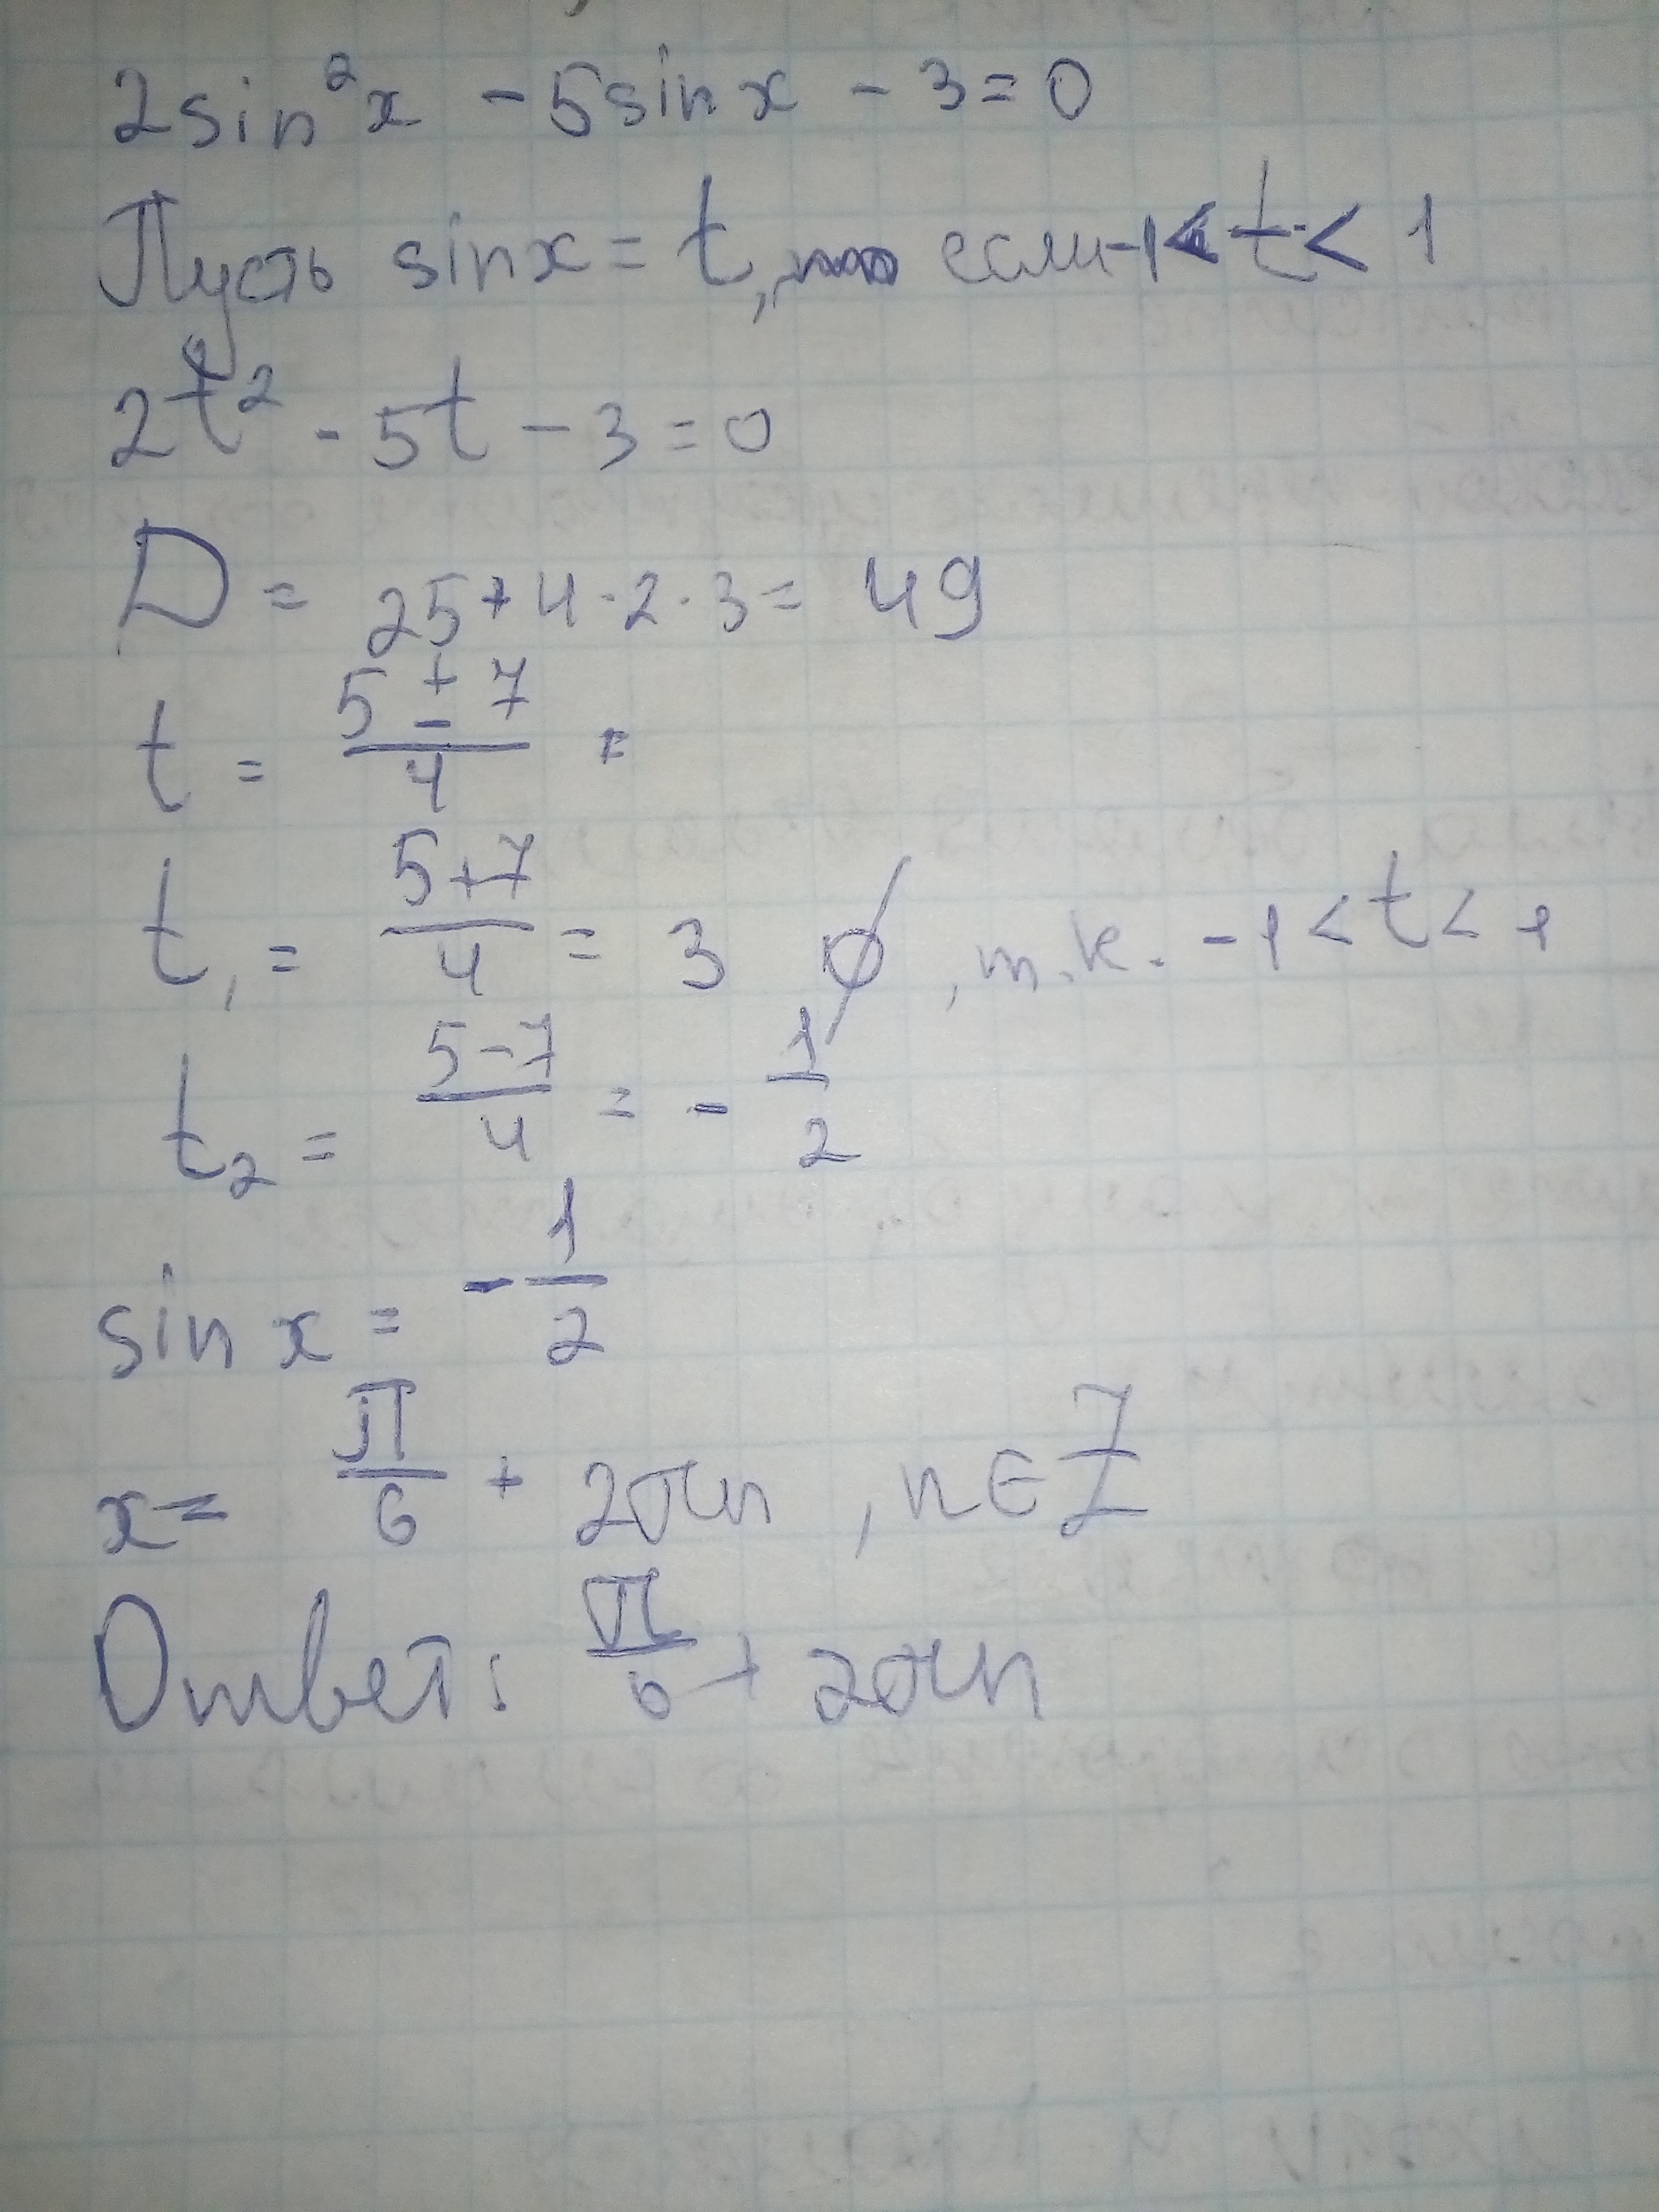 2sin²x - 5sinx - 3 = 0
Пусть sinx = t, если -1 < t < 1
2t² - 5t - 3 = 0
D = 25 + 4·2·3 = 49
t = (5 ± 7)/4 =
t₁ = (5+7)/4 = 3 ∅, т.к. -1 < t < 1
t₂ = (5-7)/4 = -1/2
sin x = -1/2
x = π/6 + 2πn, n ∈ Z
Ответ: π/6 + 2πn